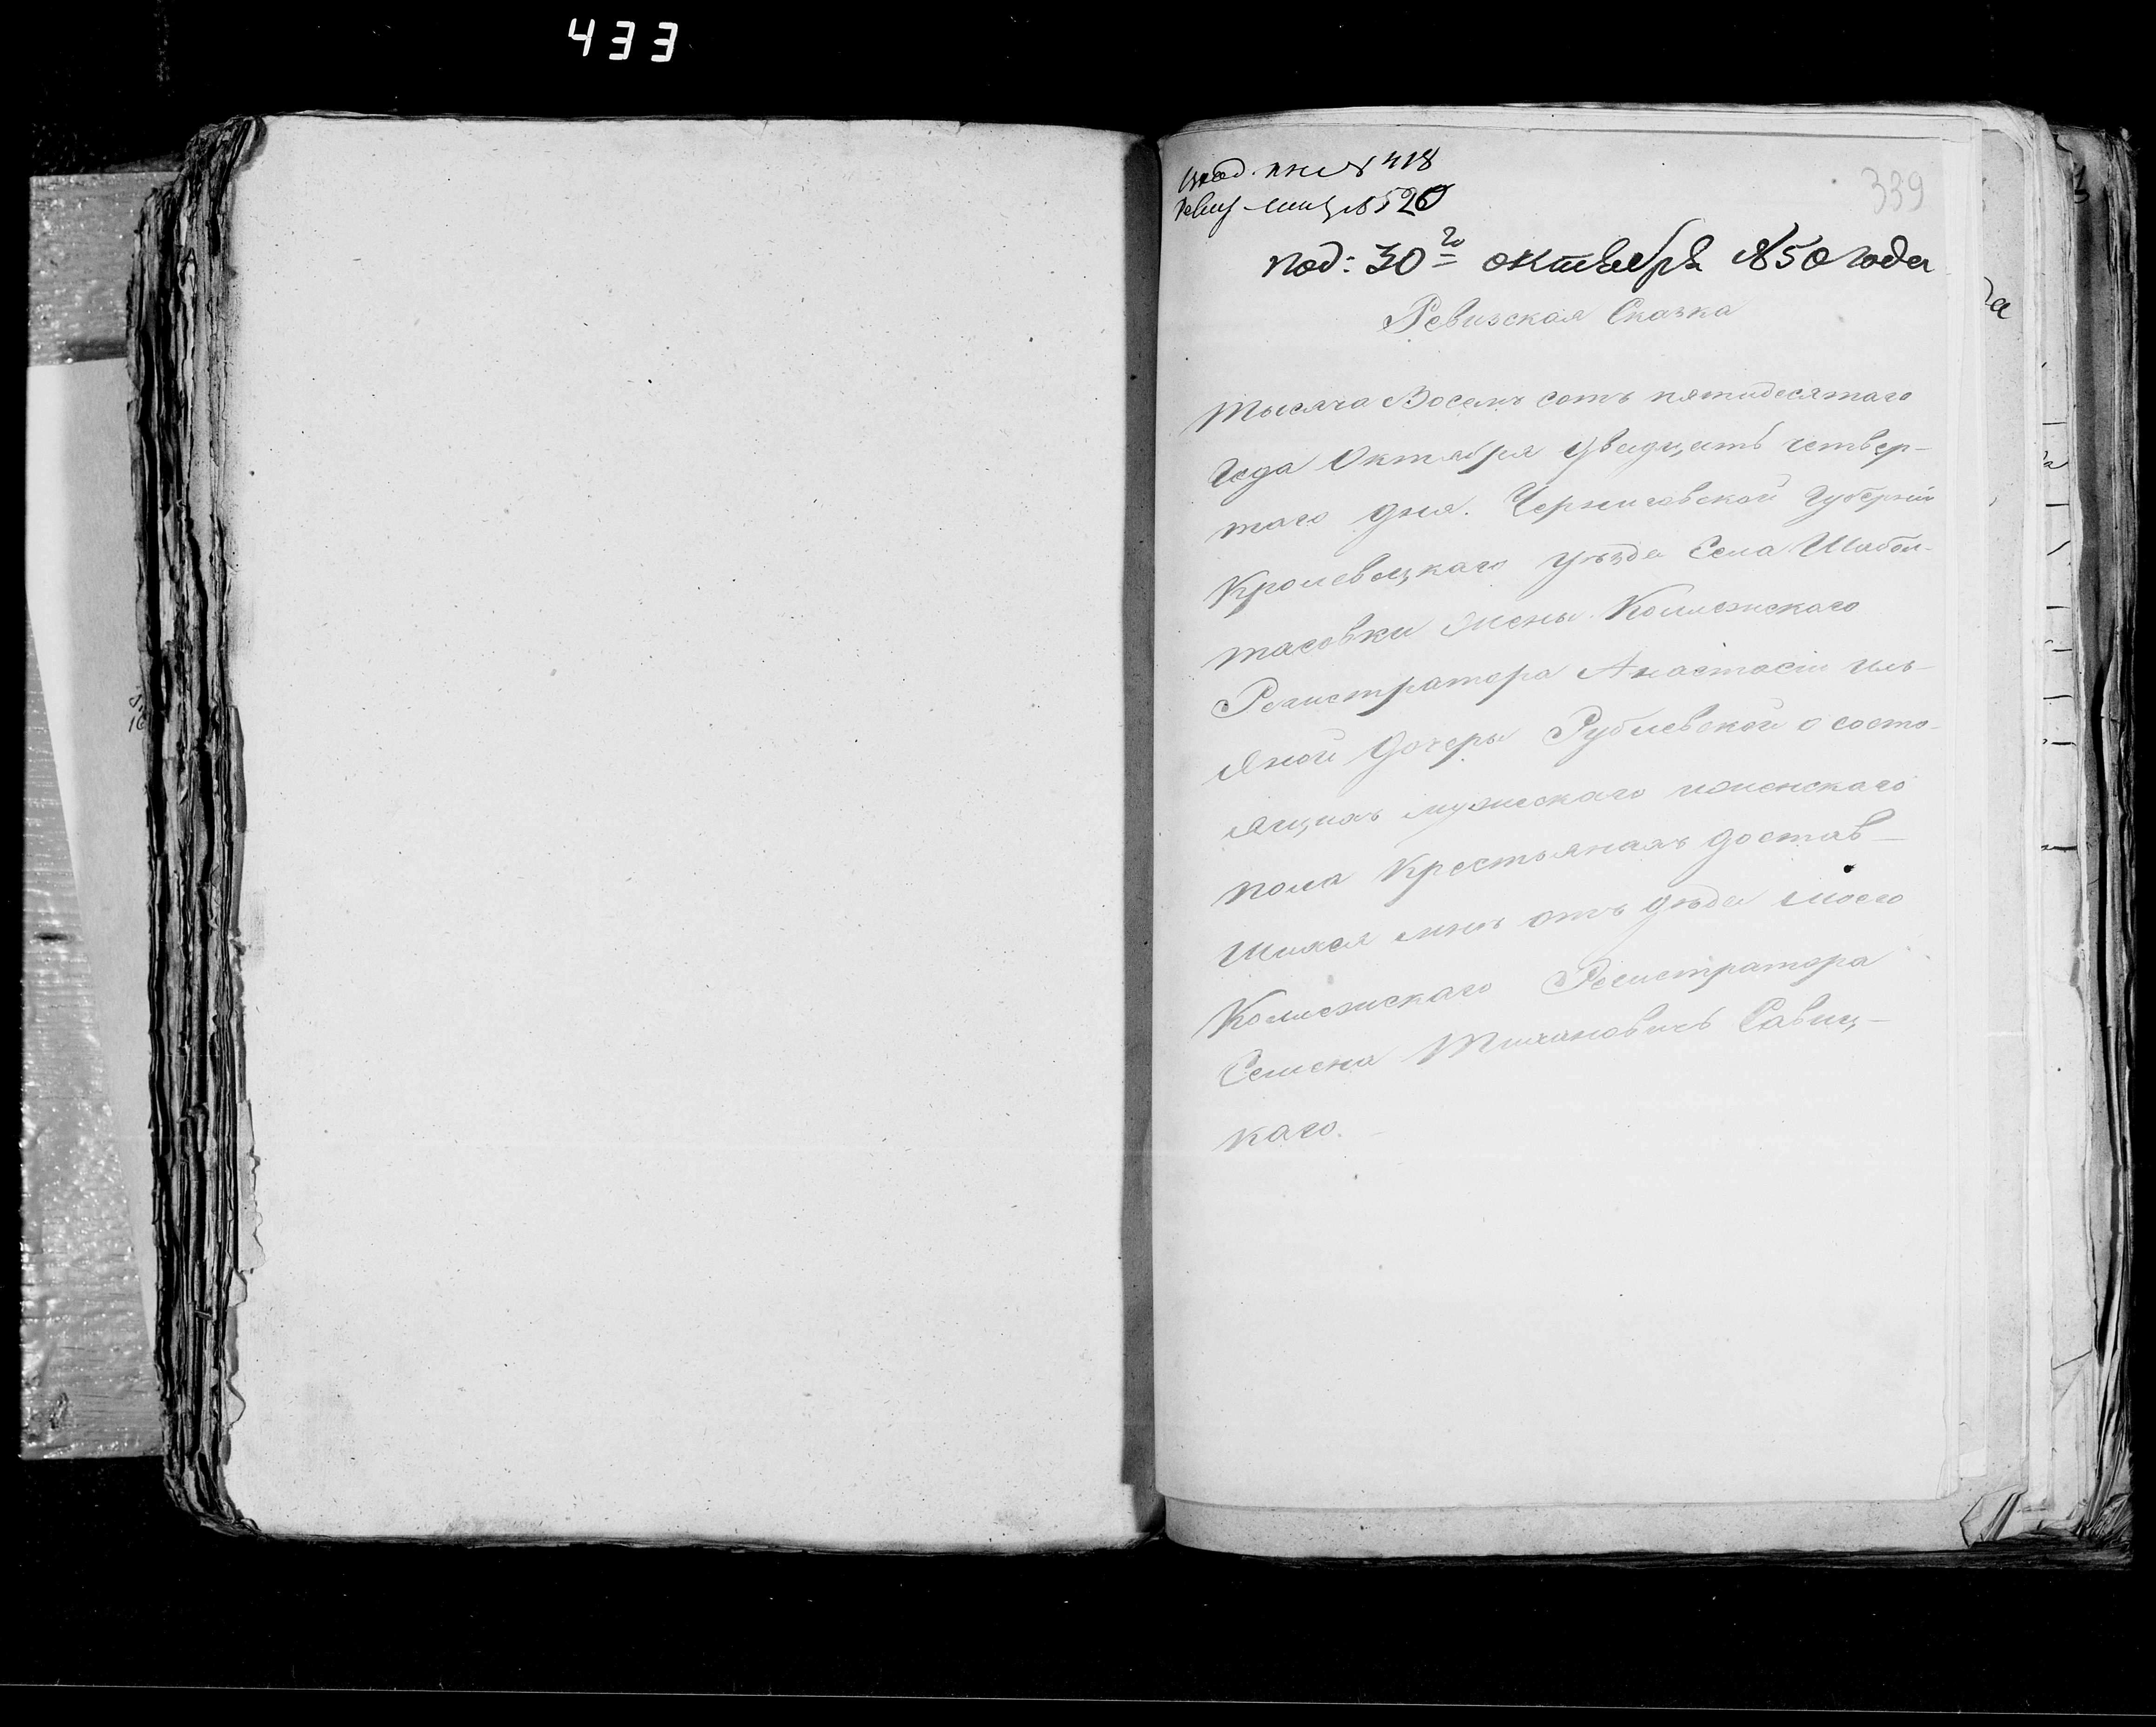 433
вход. кн. № 418
339
ревиз №520
под: 30го октября 1850 года
Ревизская Сказка
Тысяча Восемъ сотъ пятидесятаго
Года Октября двадцать четвер-
таго дня. Черниговской Губерніи
Кролевецкаго уѣзда Села Шабол-
тасовки жены Колежскаго
Регистратора Анастасіи Иль-
иной дочеры Рублевской о состо-
ящихъ мужескаго иженскаго
пола Крестьянахъ достав-
шихся мнѣ отъ дѣда моего
Колежскаго Регистратора
Семена Тихановичъ Савиц-
каго.